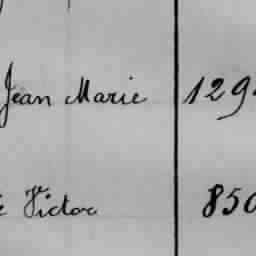 Jean Marie 129
Victor 850